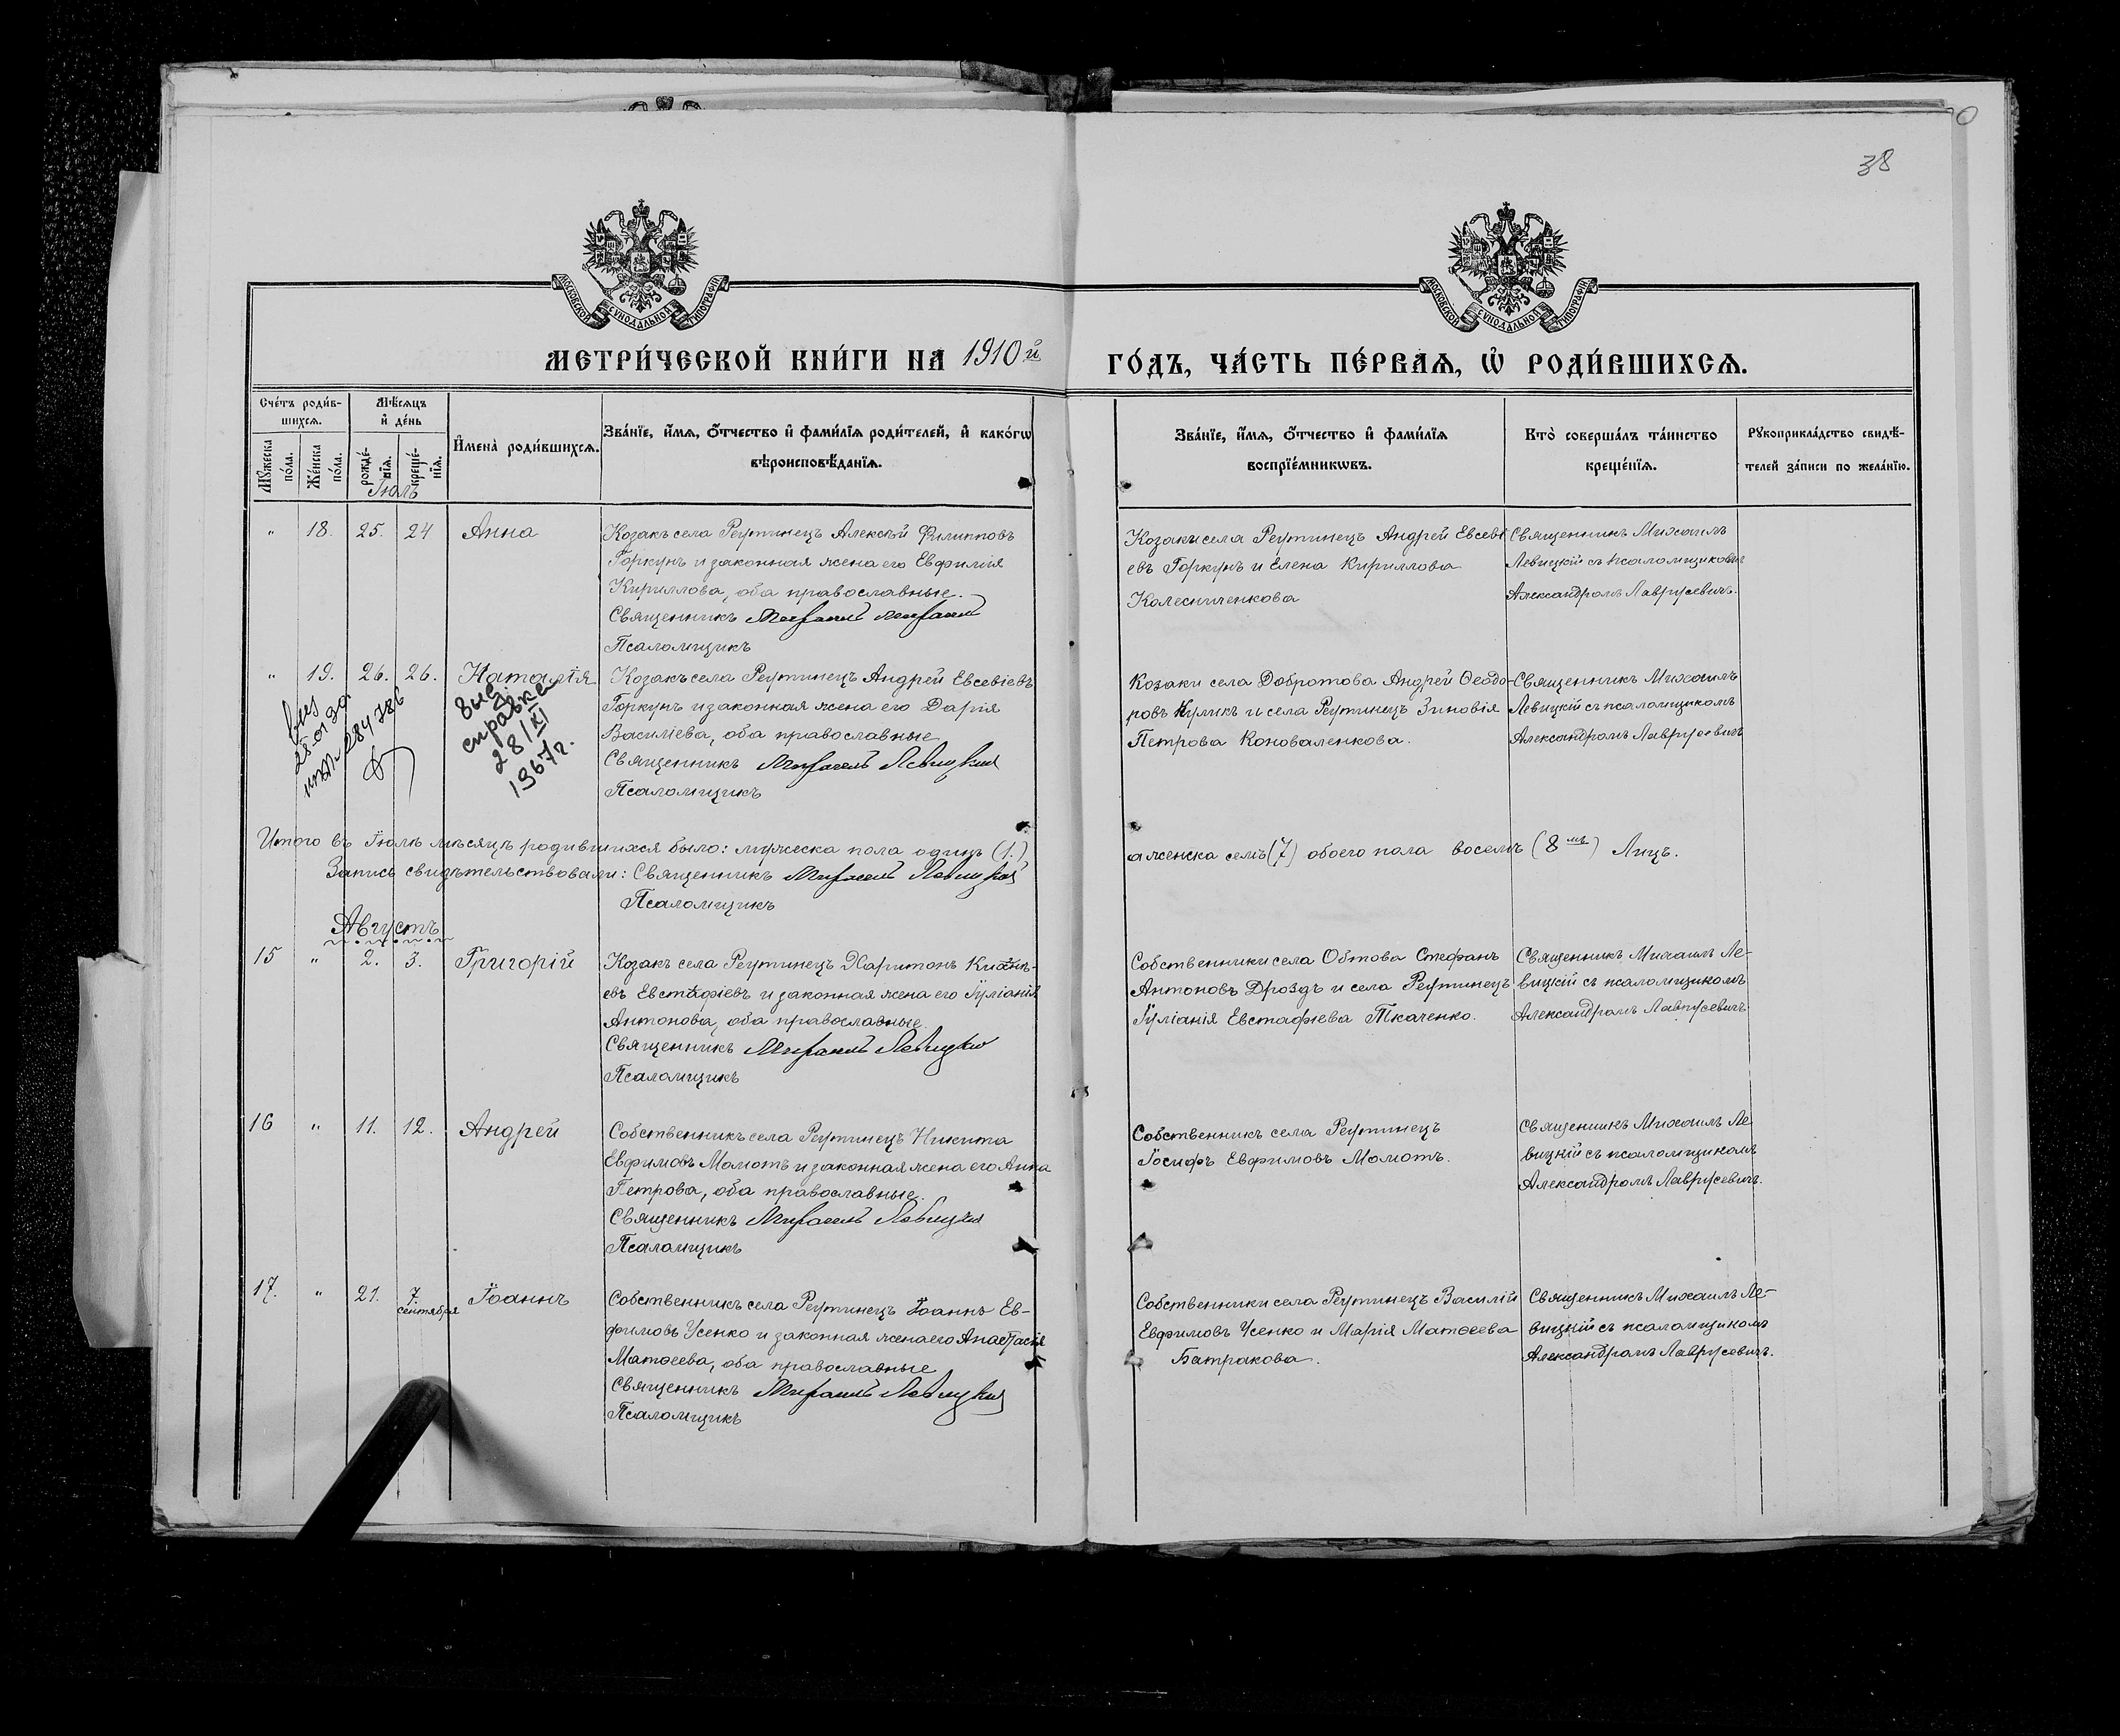 38
МОСКОВСКОЙ СУНОДАЛЬНОЙ ТИПОГРАФІИ
МОСКОВСКОЙ СУНОДАЛЬНОЙ ТИПОГРАФІИ
МЕТРИ́ЧЕСКОЙ КНИ́ГИ НА 1910й ГО́ДЪ, ЧА́СТЬ ПЕ́РВАѦ, Ѡ҆ РОДИ́ВШИХСѦ.
Сче́тъ роди́в-
шихсѧ.
Мѣ́сѧцъ
и҆ де́нь
Мꙋ́жеска
по́ла.
Же́нска
по́ла.
рожде́-
нїѧ.
креще́-
нїѧ.
И҆мена̀ роди́вшихсѧ.
Зва́нїе, и҆́мѧ, ѻ҆́тчество и҆ фами́лїѧ роди́телей, и҆ како́гѡ
вѣроисповѣ́данїѧ.
Зва́нїе, и҆́мѧ, ѻ҆́тчество и҆ фами́лїѧ
воспрїе́мникѡвъ.
Кто̀ соверша́лъ та́инство
креще́нїѧ.
Рꙋкоприкла́дство свидѣ́-
телей за́писи по жела́нїю.
Іюль
" 18. 25. 24 Анна
Козакъ села Реутинецъ Алексѣй Филипповъ
Горкунъ и законная жена его Евфимія
Кириллова, оба православные.
Священникъ
Псаломщикъ
Козаки села Реутинецъ Андрей Евсеві
евъ Горкунъ и Елена Кириллова
Колесниченкова
Священникъ Михаилъ
Левицкій съ псаломщикомъ
Александромъ Лаврусевичъ.
" 19. 26. 26. Наталія
28/XI
1967г.
справка
Козакъ села Реутинецъ Андрей Евсевіевъ
Горкунъ и законная жена его Дарія
Василіева, оба православные
Священникъ Михаилъ Левицкій
Псаломщикъ
Козаки села Добротова Андрей Ѳеодо-
ровъ Куликъ и села Реутинецъ Зиновія
Петрова Коноваленкова.
Священникъ Михаилъ
Левицкій съ псаломщикомъ
Александромъ Лаврусевичъ
Итого въ Іюлѣ мѣсяцѣ родившихся было: мужеска пола одинъ (1.) а женска семь (7) обоего пола восемь (8 мь) Лицъ.
Запись свидѣтельствовали: Священникъ Михаилъ Левицкій
Псаломщикъ
Августъ
15 " 2. 3. Григорій
Козакъ села Реутинецъ Харитонъ
евъ Евстафіевъ и законная жена его Іуліанія
Антонова, оба православные.
Священникъ Михаилъ Левицкій
Псаломщикъ
Собственники села Обтова Стефанъ
Антоновъ Дроздъ и села Реутинецъ
Іуліанія Евстафіева Ткаченко.
Священникъ Михаилъ Ле-
вицкій съ псаломщикомъ
Александромъ Лаврусевичъ
16 " 11. 12. Андрей
Собственникъ села Реутинецъ Никита
Евфимовъ Мамотъ и законная жена его Анна
Петрова, оба православные.
Священникъ Михаилъ Левицкій
Псаломщикъ
Собственникъ села Реутинецъ
Іосифъ Евфимовъ Мамотъ.
Священникъ Михаилъ Ле
вицкій съ псаломщикомъ
Александромъ Лаврусевичъ.
17. " 21. 7. сентября Іоаннъ
Собственникъ села Реутинецъ Іоаннъ Ев-
фимовъ Усенко и законная жена его Анастасія
Матѳеева, оба православные
Священникъ Михаилъ Левицкій
Псаломщикъ
Собственники села Реутинецъ Василій
Евфимовъ Усенко и Марія Матѳеева
Батракова.
Священникъ Михаилъ Ле-
вицкій съ псаломщикомъ
Александромъ Лаврусевичъ.